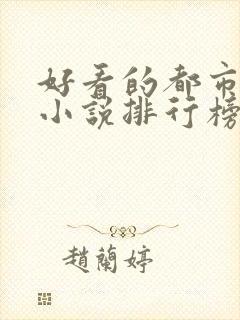 好看的都市
小说排行榜
趙蘭婷